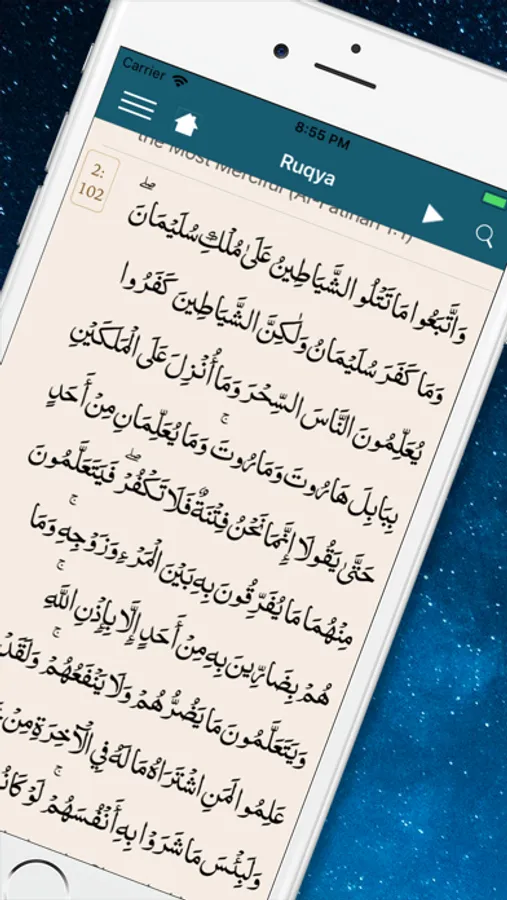 Carrier
8:55 PM
Ruqya
the Most Merciful (Al-Fatihah 1:1)
2:
102
وَاتَّبَعُوا مَا تَتْلُو الشَّيَاطِينُ عَلَىٰ مُلْكِ سُلَيْمَانَ ۖ
وَمَا كَفَرَ سُلَيْمَانُ وَلَٰكِنَّ الشَّيَاطِينَ كَفَرُوا
يُعَلِّمُونَ النَّاسَ السِّحْرَ وَمَا أُنْزِلَ عَلَى الْمَلَكَيْنِ
بِبَابِلَ هَارُوتَ وَمَارُوتَ ۚ وَمَا يُعَلِّمَانِ مِنْ أَحَدٍ
حَتَّىٰ يَقُولَا إِنَّمَا نَحْنُ فِتْنَةٌ فَلَا تَكْفُرْ ۖ فَيَتَعَلَّمُونَ
مِنْهُمَا مَا يُفَرِّقُونَ بِهِ بَيْنَ الْمَرْءِ وَزَوْجِهِ ۚ وَمَا
هُمْ بِضَارِّينَ بِهِ مِنْ أَحَدٍ إِلَّا بِإِذْنِ اللَّهِ ۚ
وَيَتَعَلَّمُونَ مَا يَضُرُّهُمْ وَلَا يَنْفَعُهُمْ ۚ وَلَقَدْ
عَلِمُوا لَمَنِ اشْتَرَاهُ مَا لَهُ فِي الْآخِرَةِ مِنْ
وَلَبِئْسَ مَا شَرَوْا بِهِ أَنْفُسَهُمْ ۚ لَوْ